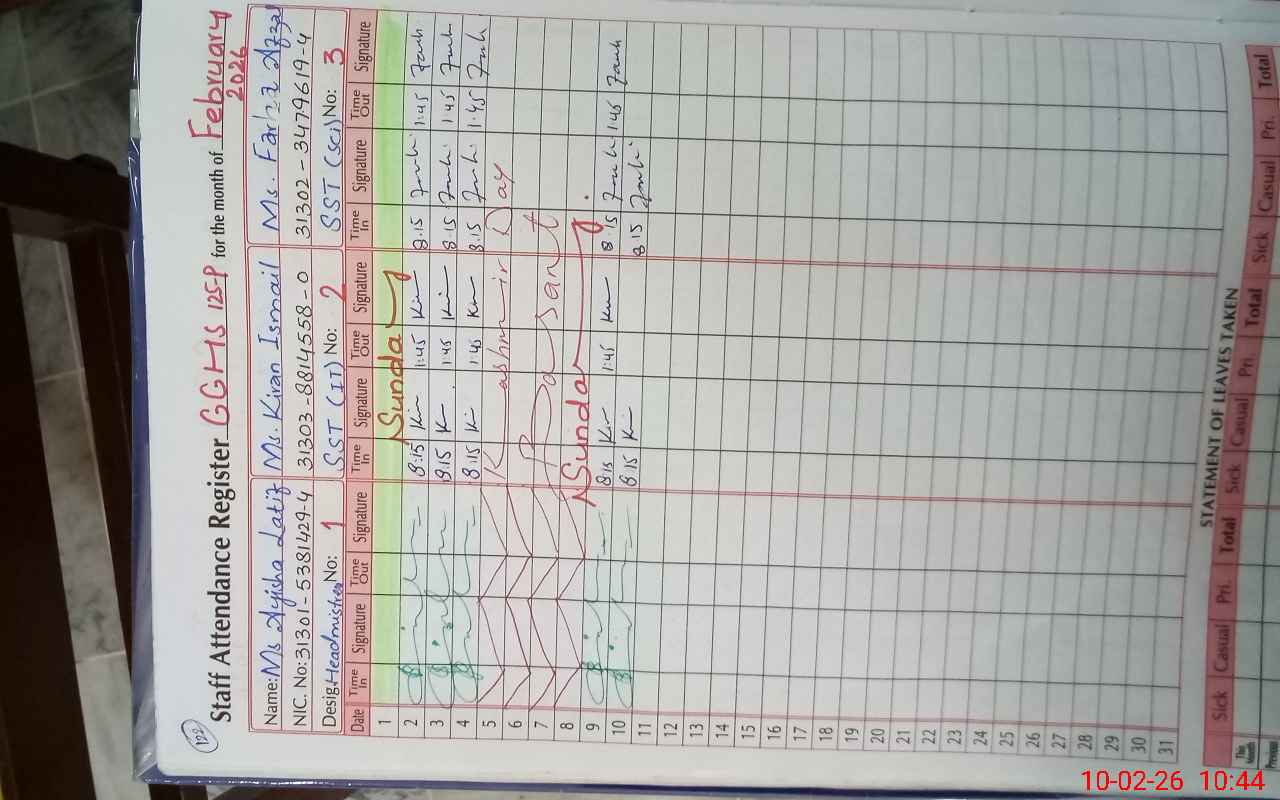 122
Staff Attendance Register GGHS 125-P for the month of February 2026
Name: Ms Ayisha Latif Ms. Kiran Ismail Ms. Farhz Afzal
NIC. No: 31301-5381429-4 31303-8814558-0 31302-3479619-4
Desig. Headmistress No: 1 SST (II) No: 2 SST (Sci) No: 3
Date Time In Signature Time Out Signature Time In Signature Time Out Signature Time In Signature Time Out Signature
1 Sunday
2 8:15 1:45 8:15 1:45
3 8:15 1:45 8:15 1:45
4 8:15 1:45 8:15 1:45
5 Kashmir Day
6
7 Basant
8 Sunday
9 8:15 1:45 8:15 1:45
10 8:15 8:15
11
12
13
14
15
16
17
18
19
20
21
22
23
24
25
26
27
28
29
30
31
STATEMENT OF LEAVES TAKEN
Sick Casual Pri. Total Sick Casual Pri. Total Sick Casual Pri. Total
This Month
Previous
10-02-26 10:44